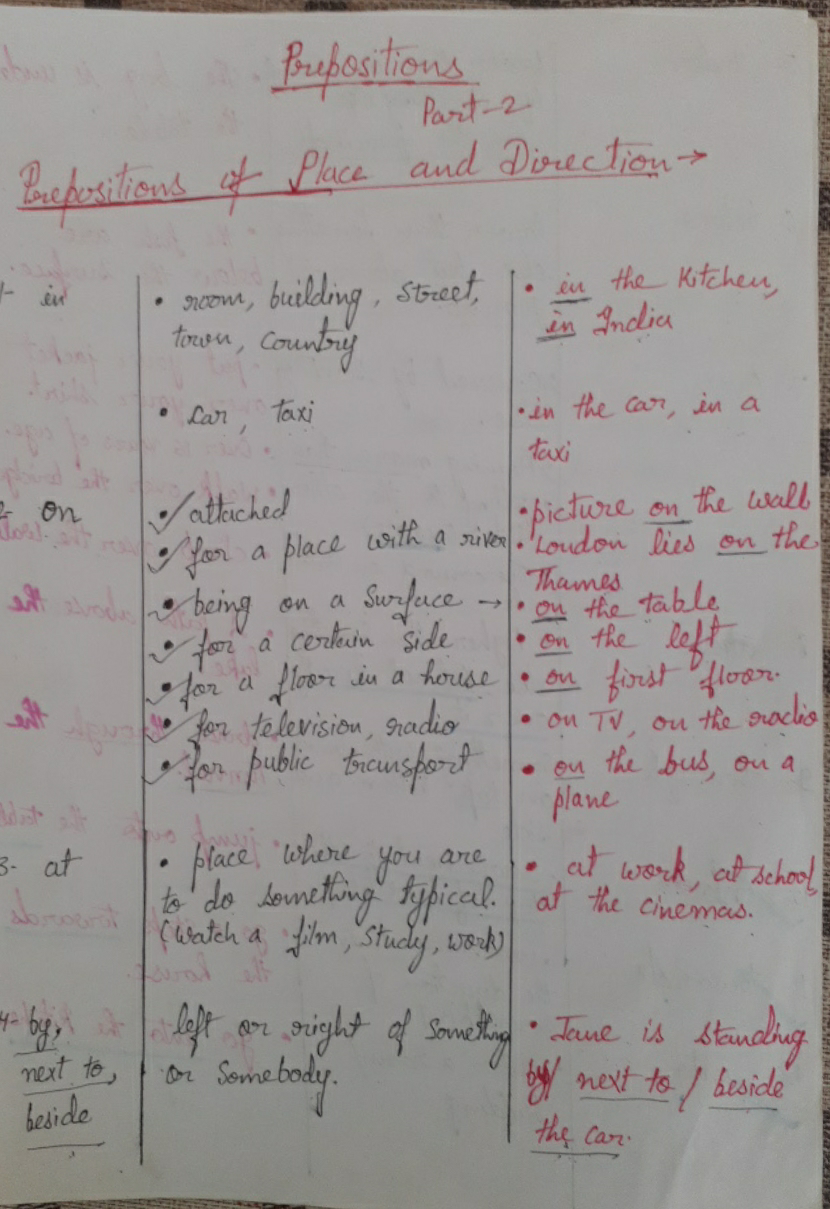 Prepositions
Part-2
Prepositions of Place and Direction→
1- in
• room, building, street,
town, country
• in the kitchen,
in India
• car, taxi
• in the car, in a
taxi
2- on
• attached
• picture on the wall
• for a place with a river
• London lies on the
Thames
• being on a surface →
• on the table
• for a certain side
• on the left
• for a floor in a house
• on first floor.
• for television, radio
• on TV, on the radio
• for public transport
• on the bus, on a
plane
3- at
• place where you are
to do something typical.
(watch a film, study, work)
• at work, at school,
at the cinemas.
4- by,
next to,
beside
left or right of something
or somebody.
• Jane is standing
by/ next to / beside
the car.